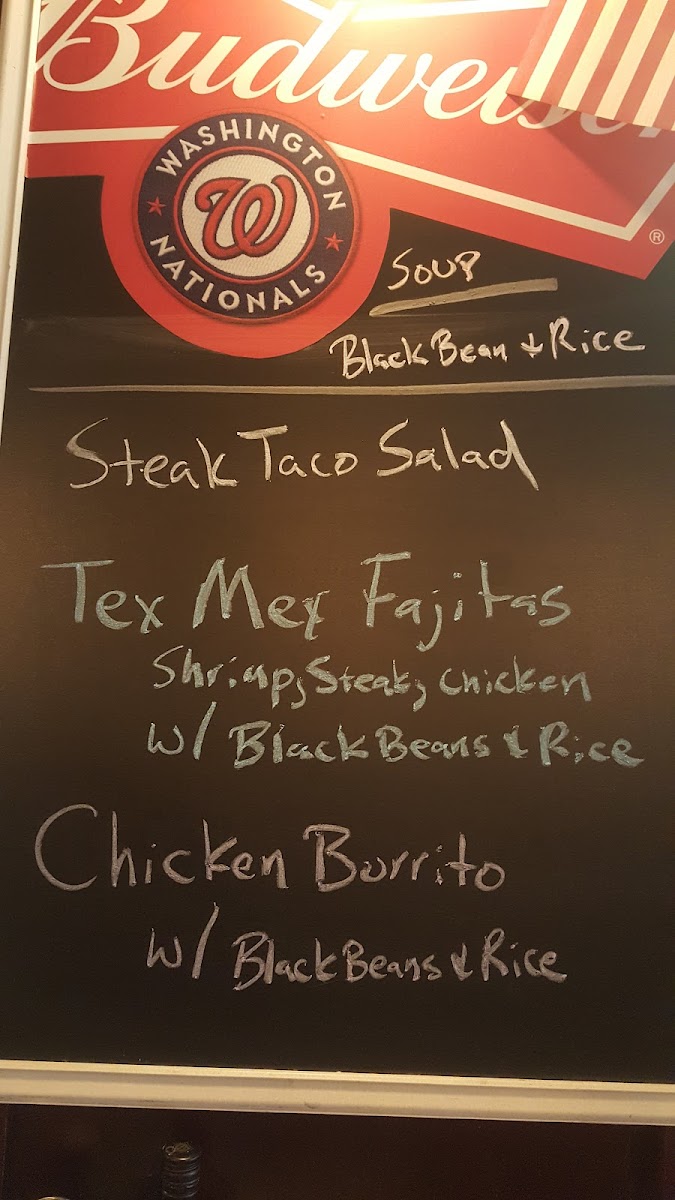 Budweiser
WASHINGTON
NATIONALS
W
®
Soup
Black Bean & Rice
Steak Taco Salad
Tex Mex Fajitas
Shrimp, Steak, Chicken
W/ Black Beans & Rice
Chicken Burrito
W/ Black Beans & Rice